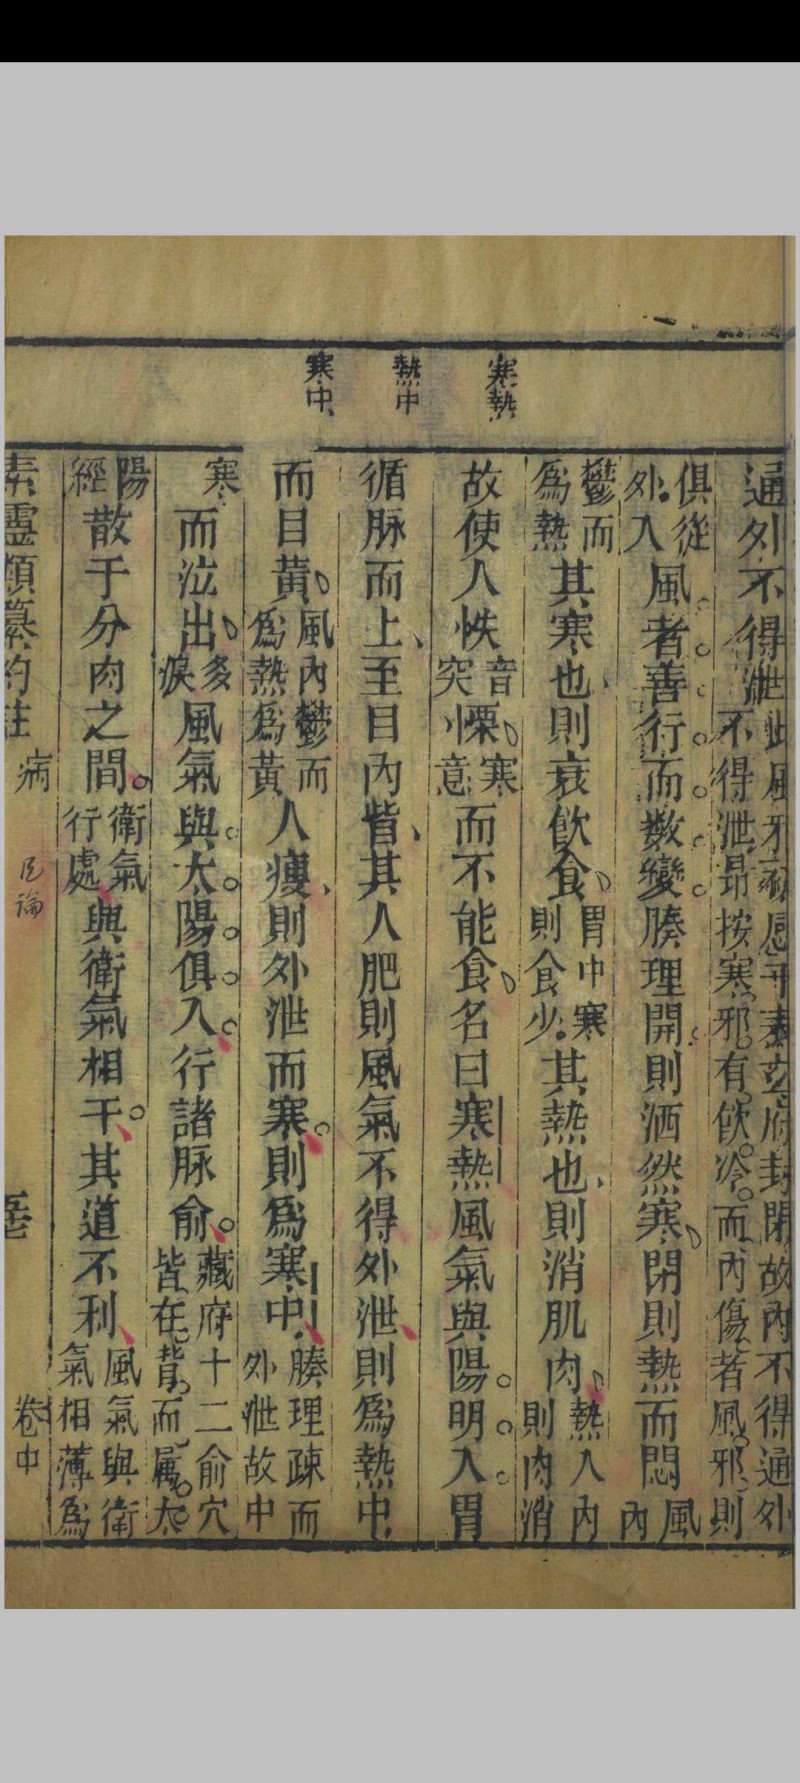 寒熱
熱中
寒中
通外不得泄此風邪感于玄府封閉故內不得通外不得泄昂按寒邪有飲冷而內傷者風邪則
俱從外入風者善行而數變腠理開則洒然寒閉則熱而悶風內
鬱而為熱其寒也則衰飲食胃中寒則食少其熱也則消肌肉熱入內則肉消
故使人怢音突慄寒意而不能食名曰寒熱風氣與陽明入胃
循脉而上至目內眥其人肥則風氣不得外泄則為熱中
而目黃風內鬱而為熱為黃人瘦則外泄而寒則為寒中腠理疎而外泄故中
寒而泣出多淚風氣與太陽俱入行諸脉俞藏府十二俞穴皆在背而屬太
陽經散于分肉之間衛氣行處與衛氣相干其道不利風氣與衛氣相薄為
素靈類纂約註 病 卷中